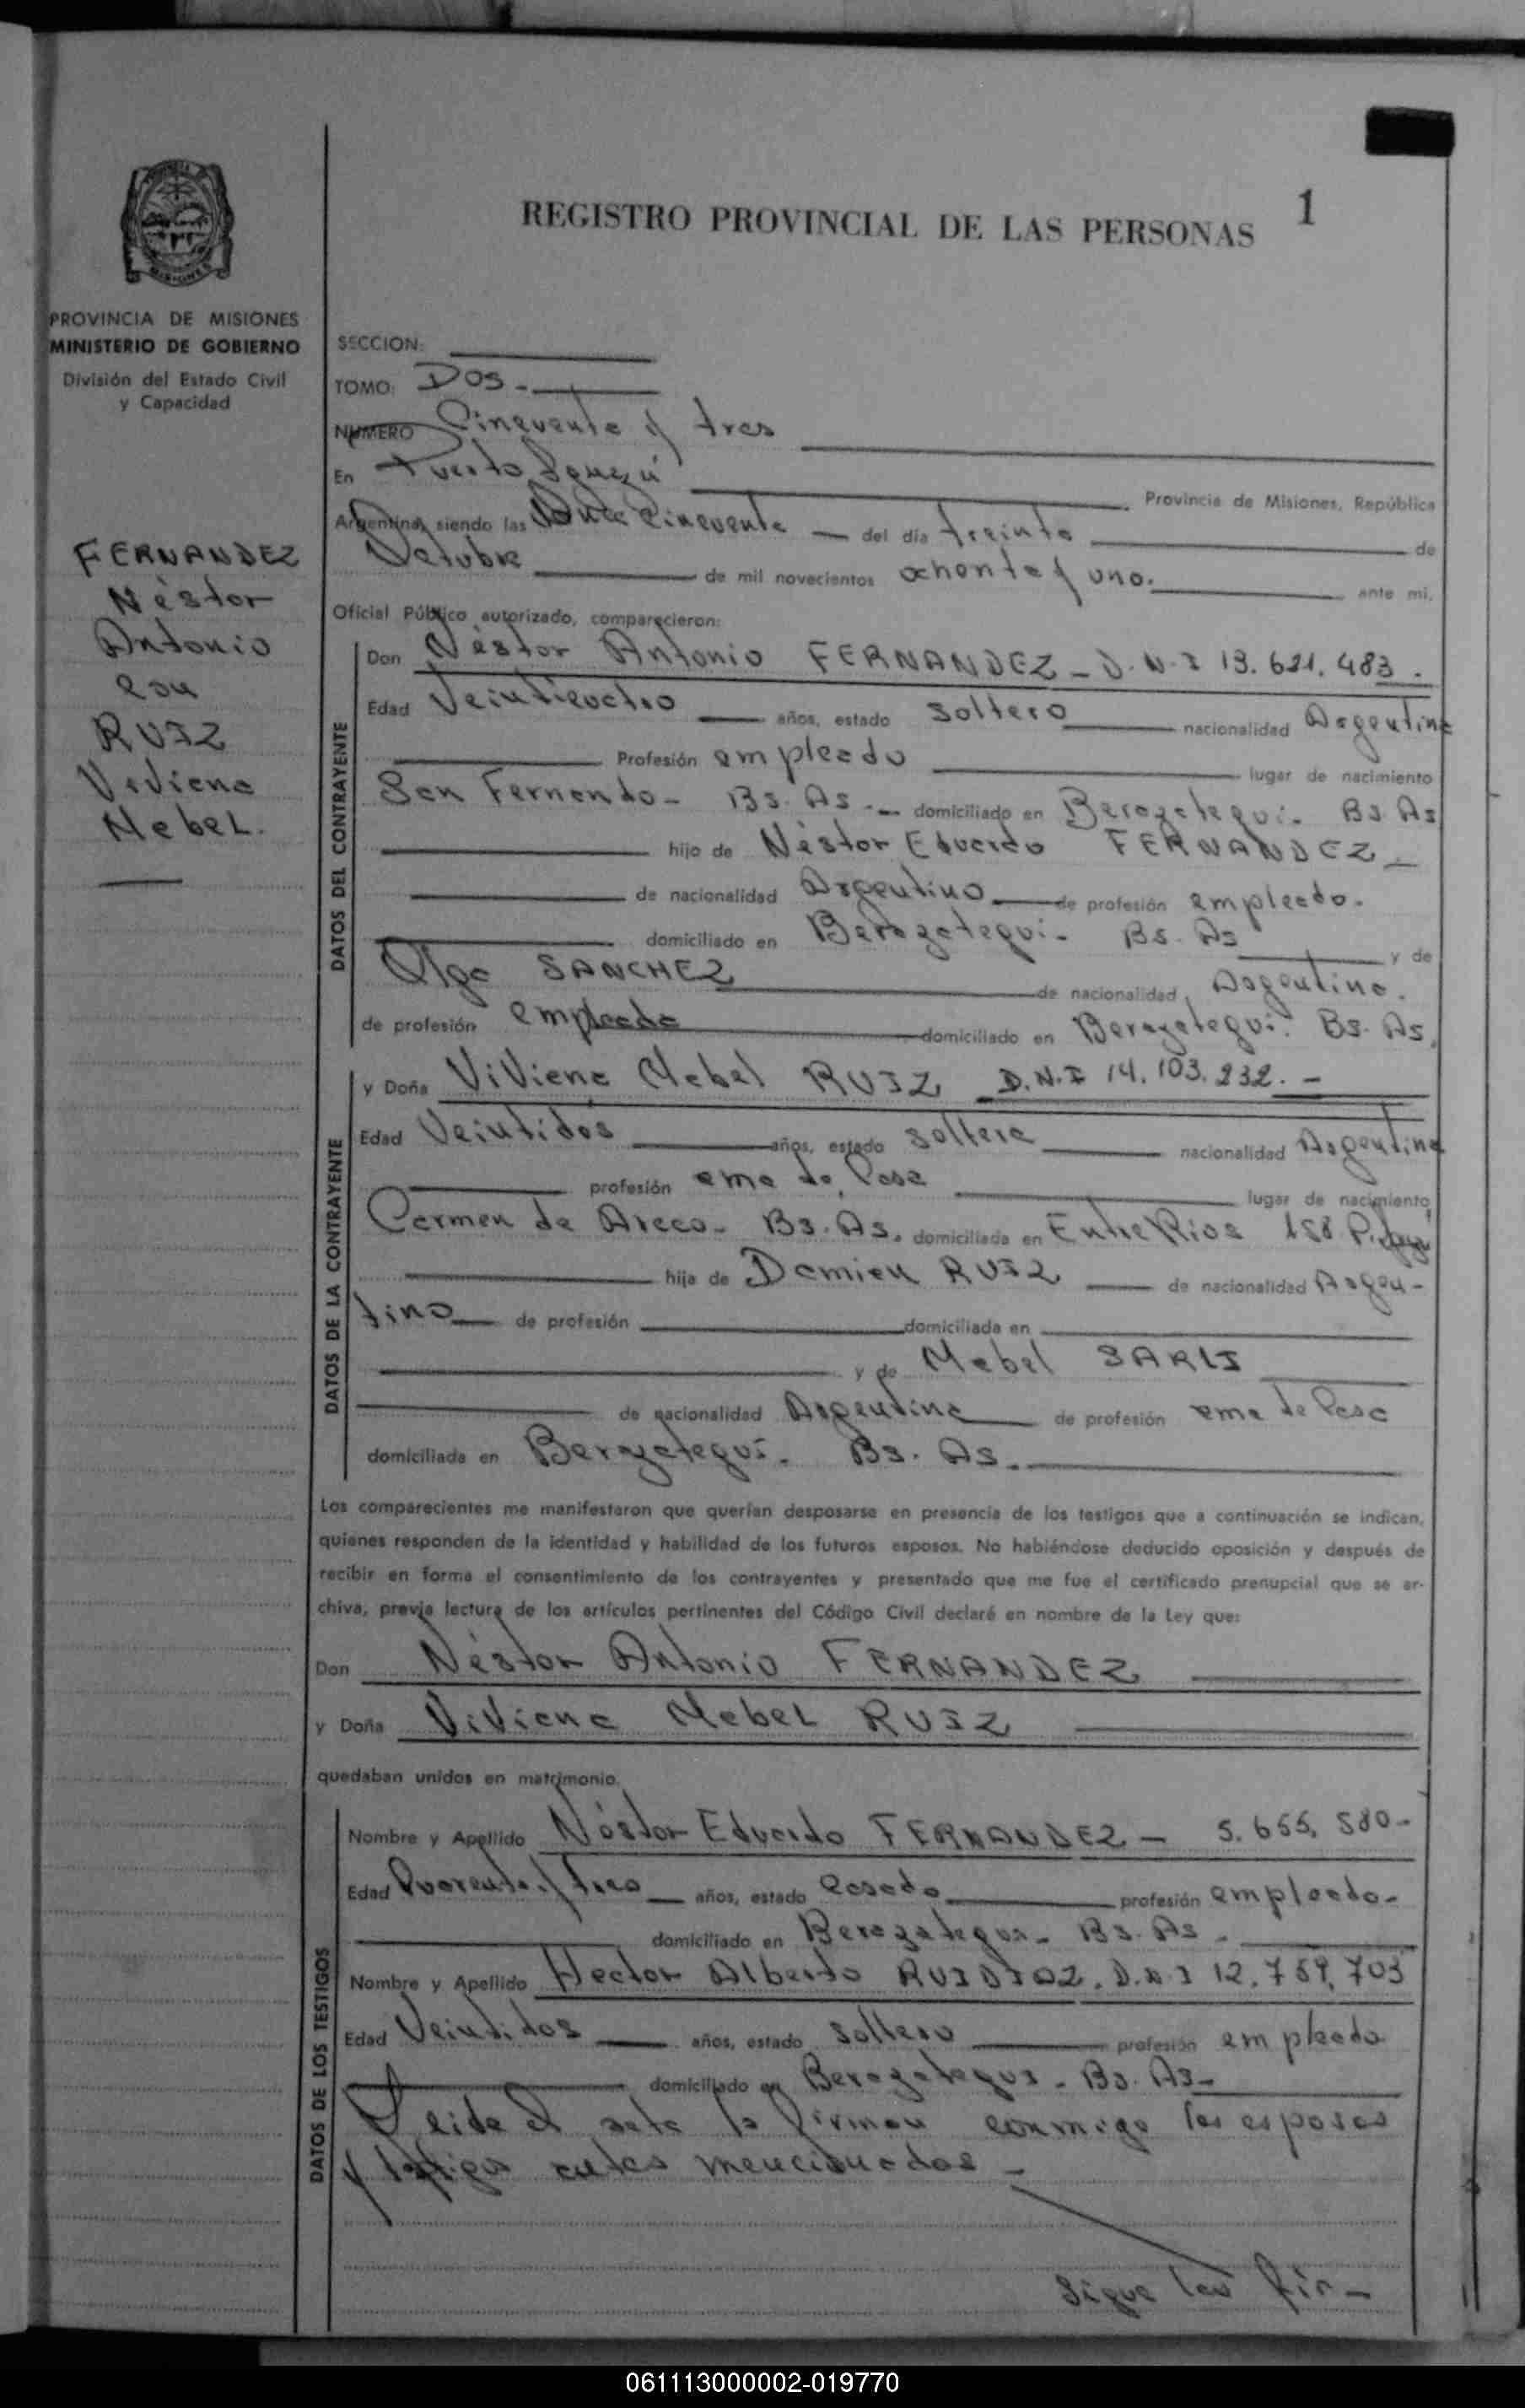 REGISTRO PROVINCIAL DE LAS PERSONAS 1
PROVINCIA DE MISIONES
MINISTERIO DE GOBIERNO
División del Estado Civil
y Capacidad
FERNANDEZ
Néstor
Antonio
con
RUIZ
Viviana
Mabel.
SECCION:
TOMO: Dos -
NUMERO Cincuenta y tres
En Puerto Iguazú Provincia de Misiones, República
Argentina, siendo las Once Cincuenta del día treinta de
Octubre de mil novecientos ochenta y uno. ante mi.
Oficial Público autorizado, comparecieron:
DATOS DEL CONTRAYENTE
Don Néstor Antonio FERNANDEZ - D.N.I 13.621.483.
Edad Veinticuatro años, estado soltero nacionalidad Argentina
Profesión empleado lugar de nacimiento
San Fernando - Bs. As. - domiciliado en Berazategui - Bs As
hijo de Néstor Eduardo FERNANDEZ -
de nacionalidad Argentino de profesión empleado.
domiciliado en Berazategui - Bs. As y de
Olga SANCHEZ de nacionalidad Argentina.
de profesión empleada domiciliado en Berazategui. Bs. As.
DATOS DE LA CONTRAYENTE
y Doña Viviana Mabel RUIZ D.N.I 14.103.232. -
Edad Veintidos años, estado soltera nacionalidad Argentina
profesión ama de Casa lugar de nacimiento
Carmen de Areco - Bs. As. domiciliada en Entre Rios 158
hija de Damian RUIZ de nacionalidad Argen-
tino de profesión domiciliada en
y de Mabel SARLI
de nacionalidad Argentina de profesión ama de Casa
domiciliada en Berazategui. Bs. As.
Los comparecientes me manifestaron que querían desposarse en presencia de los testigos que a continuación se indican,
quienes responden de la identidad y habilidad de los futuros esposos. No habiéndose deducido oposición y después de
recibir en forma el consentimiento de los contrayentes y presentado que me fue el certificado prenupcial que se ar-
chiva, previa lectura de los artículos pertinentes del Código Civil declaré en nombre de la Ley que:
Don Néstor Antonio FERNANDEZ
y Doña Viviana Mabel RUIZ
quedaban unidos en matrimonio.
DATOS DE LOS TESTIGOS
Nombre y Apellido Néstor Eduardo FERNANDEZ - 5.655.580-
Edad Cuarenta y tres años, estado Casado profesión empleado-
domiciliado en Berazategui - Bs. As.
Nombre y Apellido Hector Alberto RUIDIAZ. D.N.I 12.759.703
Edad Veintidos años, estado soltero profesión empleado
domiciliado en Berazategui - Bs. As-
Leida el acta la firman conmigo los esposos
y testigos antes mencionados -
Sigue las fir-
061113000002-019770